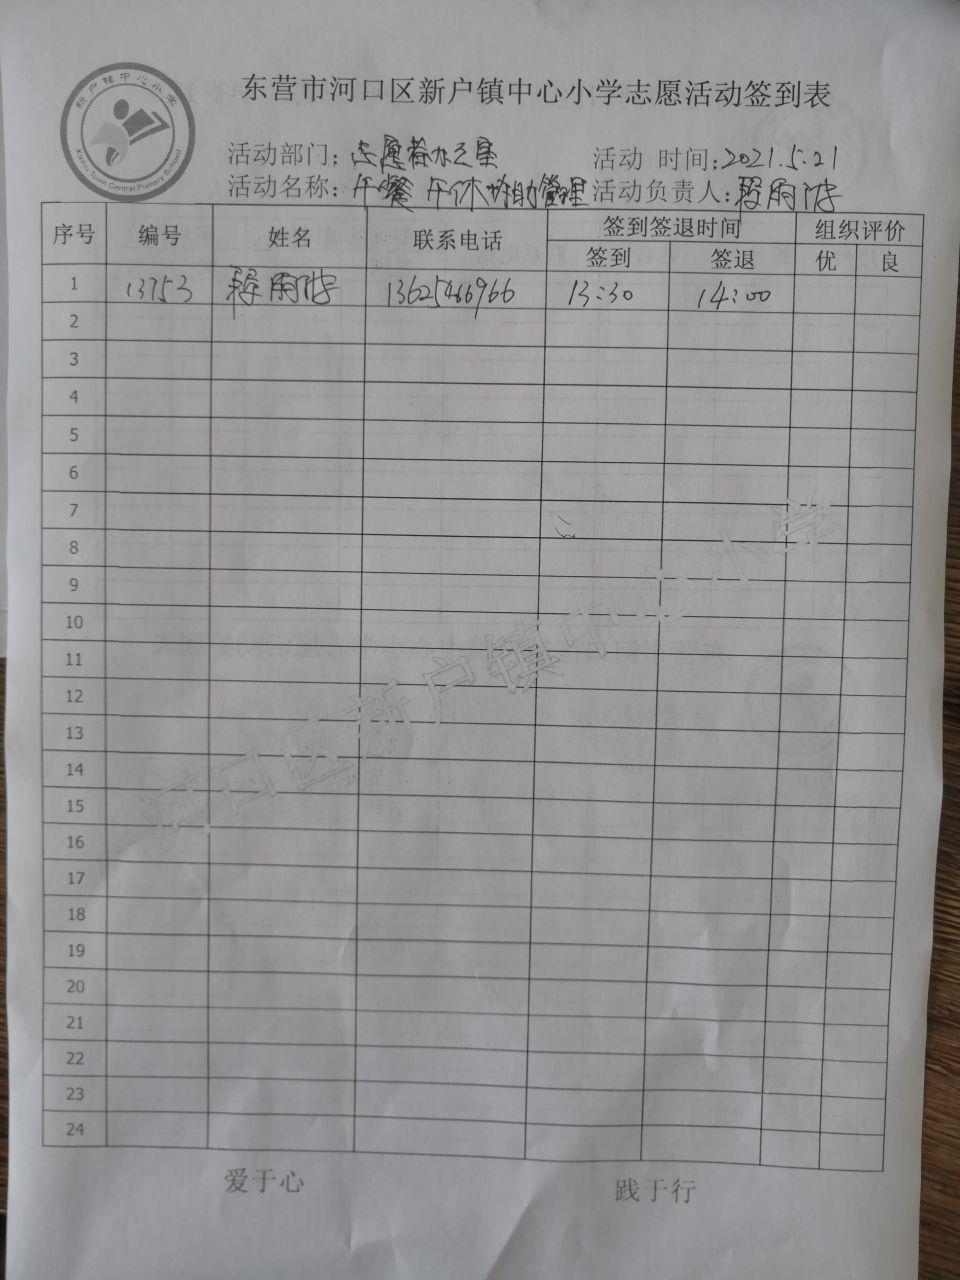 新户镇中心小学
Xinhu Town Central Primary School
东营市河口区新户镇中心小学志愿活动签到表
活动部门：志愿者办公室 活动 时间：2021.5.21
活动名称：午餐 午休协助管理 活动负责人：
序号 编号 姓名 联系电话 签到签退时间 组织评价
签到 签退 优 良
1 13753 13625466966 13:30 14:00
2
3
4
5
6
7
8
9
10
11
12
13
14
15
16
17
18
19
20
21
22
23
24
河口区新户镇中心小学
爱于心 践于行